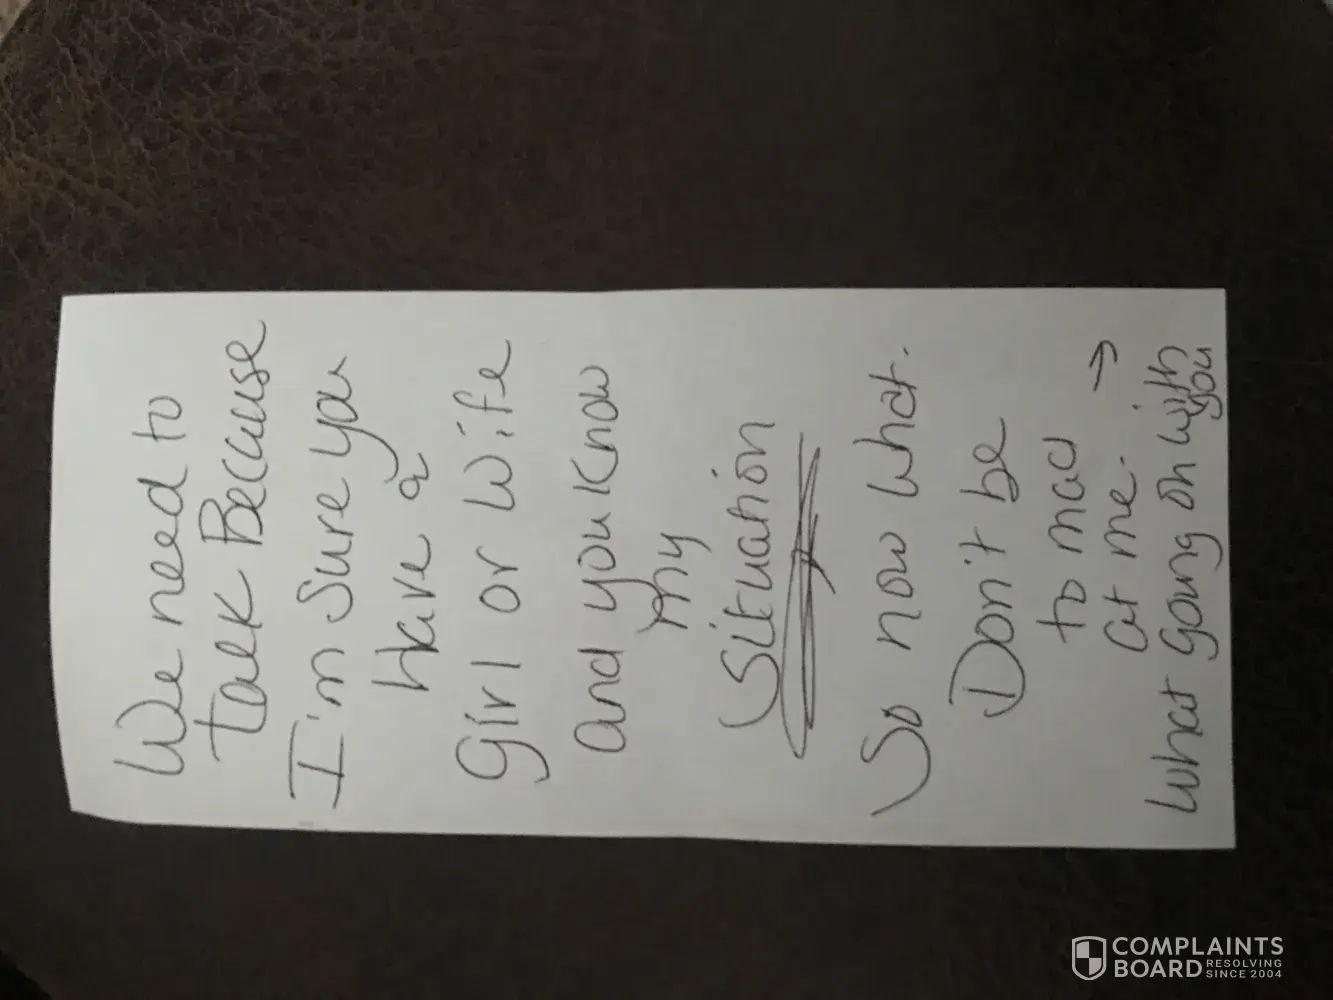 We need to
talk Because
I'm sure you
have a
Girl or Wife
and you know
my
Situation
So now what.
Don't be
to mad
at me. →
what going on with
you
COMPLAINTS
BOARD RESOLVING
SINCE 2004